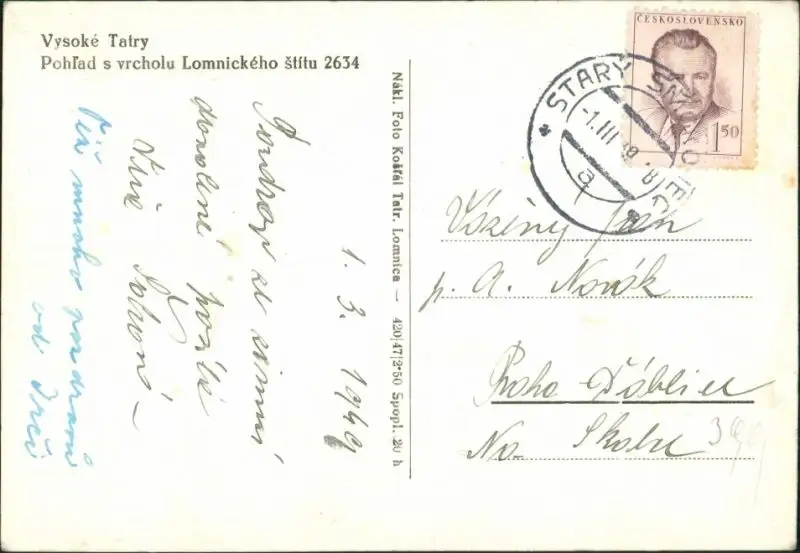 Vysoké Tatry
Pohľad s vrcholu Lomnického štítu 2634
Pozdrav ze zimní
dovolené posílá
Víťa
1. 3. 1949
mnoho pozdravů
od
Nákl. Foto Košťál Tatr. Lomnica — 420/47/2·50 Spopl. 20 h
ČESKOSLOVENSKO
1 50
STARÝ SMOKOVEC
-1.III.49.-8
a
Vážený pán
p. A. Novák
Praha Ďáblice
Na Skalce